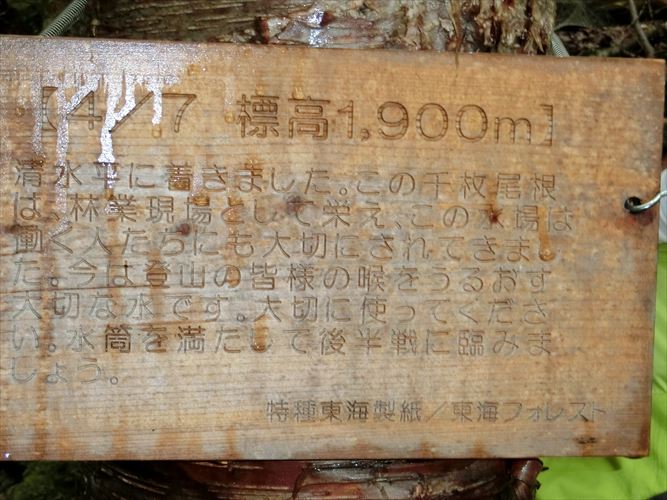 【4/7 標高1,900m】
清水平に着きました。この千枚尾根
は、林業現場として栄え、この水場は
働く人たちにも大切にされてきまし
た。今は登山の皆様の喉をうるおす
大切な水です。大切に使ってくださ
い。水筒を満たして後半戦に臨みま
しょう。
特種東海製紙/東海フォレスト